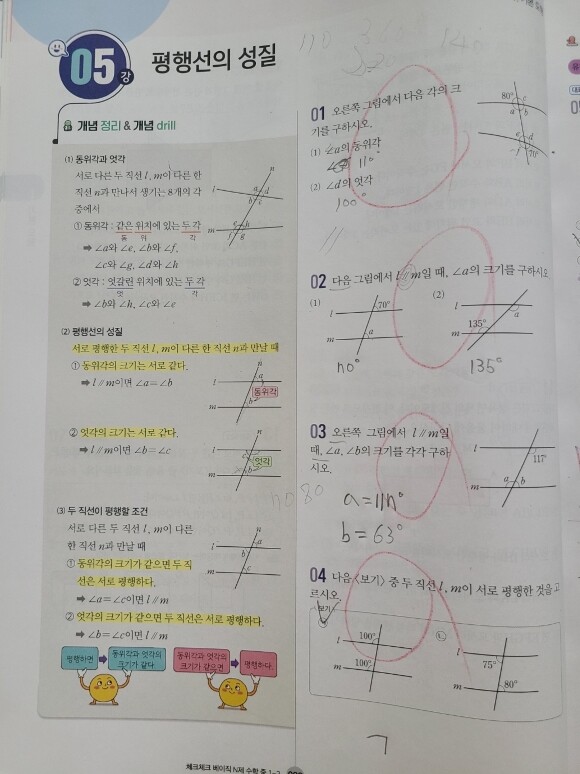 05강 평행선의 성질
개념 정리 & 개념 drill
(1) 동위각과 엇각
서로 다른 두 직선 l, m이 다른 한
직선 n과 만나서 생기는 8개의 각
중에서
① 동위각 : 같은 위치에 있는 두 각
동 위 각
➡ ∠a와 ∠e, ∠b와 ∠f,
∠c와 ∠g, ∠d와 ∠h
② 엇각 : 엇갈린 위치에 있는 두 각
엇 각
➡ ∠b와 ∠h, ∠c와 ∠e
n
l
a d
b c
m
e h
f g
(2) 평행선의 성질
서로 평행한 두 직선 l, m이 다른 한 직선 n과 만날 때
① 동위각의 크기는 서로 같다.
➡ l // m이면 ∠a=∠b
n
l a
동위각
m b
② 엇각의 크기는 서로 같다.
➡ l // m이면 ∠b=∠c
n
l
엇각
m b
(3) 두 직선이 평행할 조건
서로 다른 두 직선 l, m이 다른
한 직선 n과 만날 때
① 동위각의 크기가 같으면 두 직
선은 서로 평행하다.
➡ ∠a=∠c이면 l // m
② 엇각의 크기가 같으면 두 직선은 서로 평행하다.
➡ ∠b=∠c이면 l // m
n
l a
b
m c
평행하면 동위각과 엇각의
크기가 같다
동위각과 엇각의
크기가 같으면 평행하다
110
01 오른쪽 그림에서 다음 각의 크
기를 구하시오.
(1) ∠a의 동위각
110°
(2) ∠d의 엇각
100°
80° c
a b
e d
f 70°
02 다음 그림에서 l // m일 때, ∠a의 크기를 구하시오.
(1)
l 70°
m a
110°
(2)
l a
135°
m
135°
03 오른쪽 그림에서 l // m일
때, ∠a, ∠b의 크기를 각각 구하
시오.
l 117°
m a b
a=117°
b=63°
04 다음 <보기> 중 두 직선 l, m이 서로 평행한 것을 고
르시오.
보기
ㄱ
l 100°
m 100°
ㄴ
l 75°
m 80°
ㄱ
체크체크 베이직 N제 수학 중 1-2